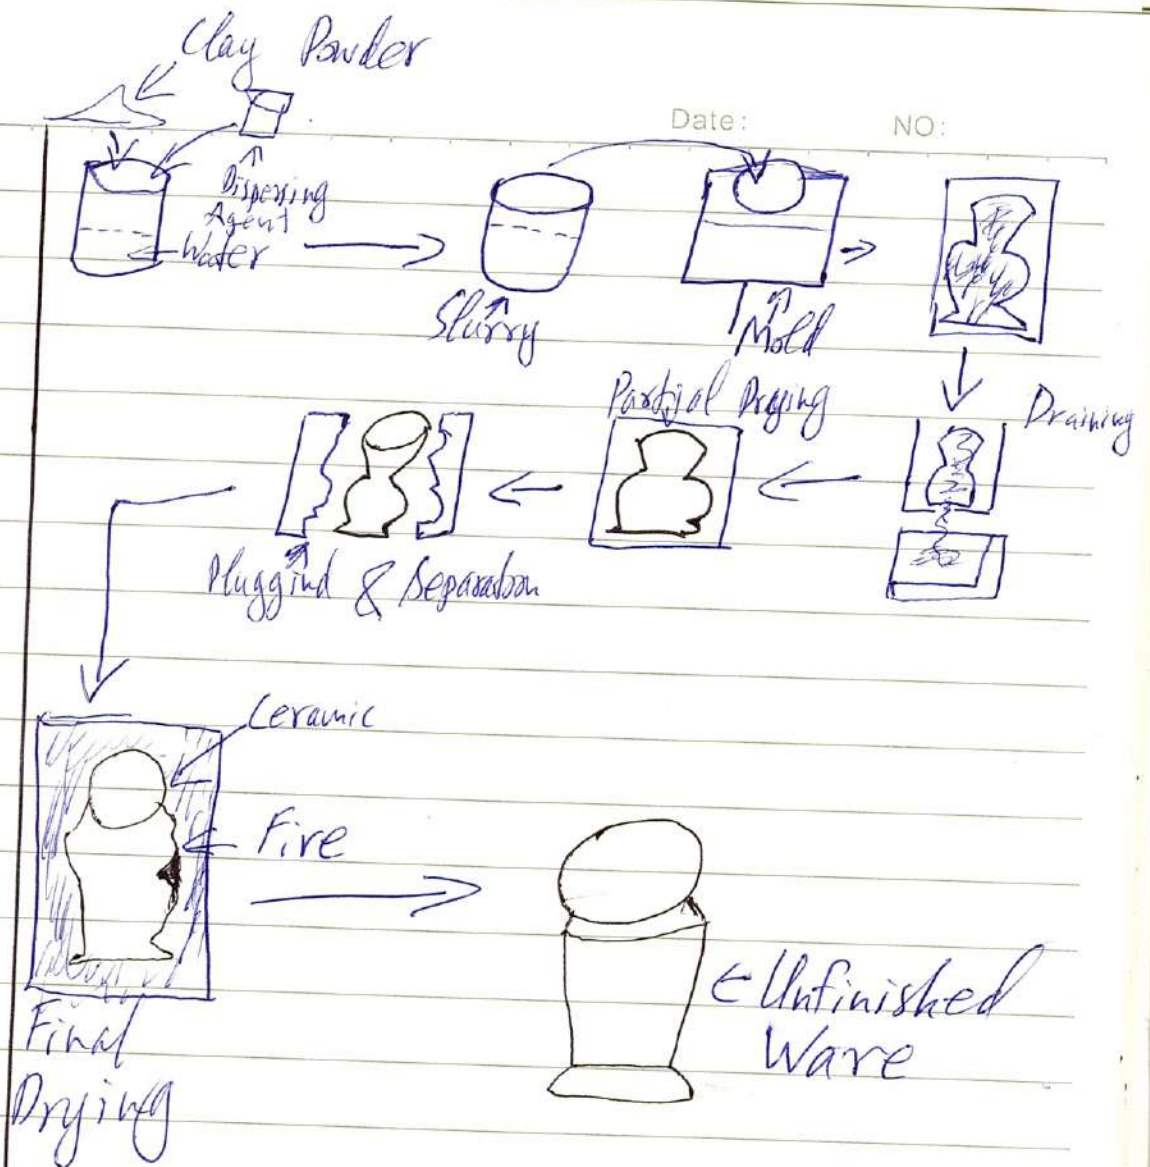 Clay Powder
Date:
NO:
Dispersing
Agent
Water
Slurry
Mold
Draining
Partijal Drying
Pluggind & Separation
Ceramic
Fire
Final
Drying
Unfinished
Ware